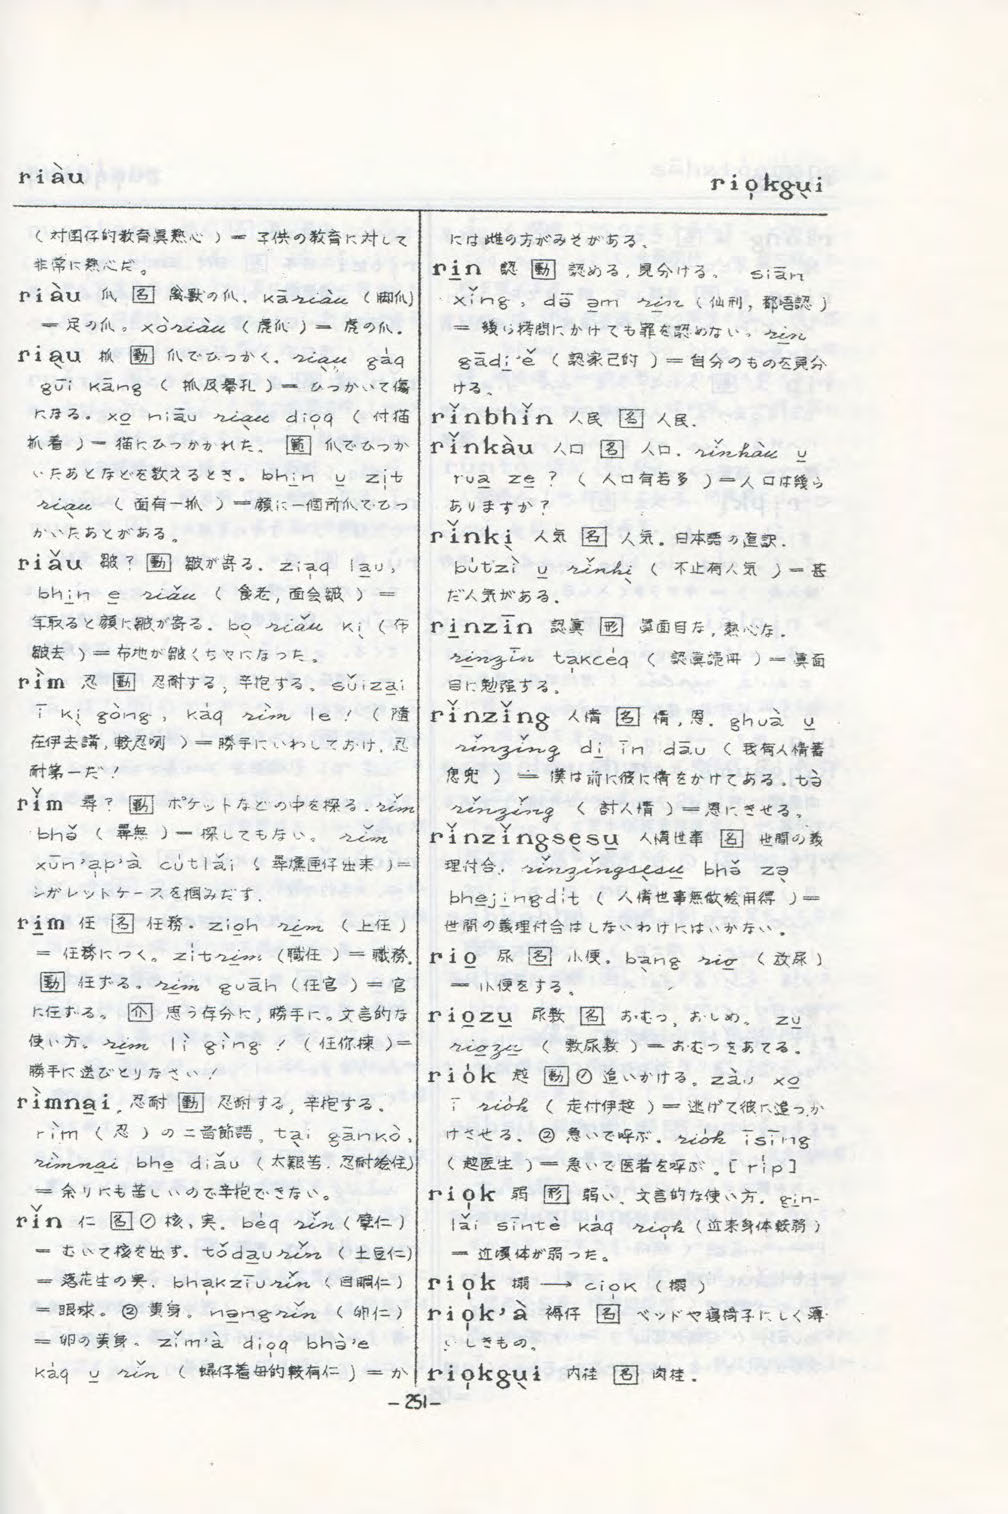 riàu
rio̍kgùi
(対囝仔的教育眞熱心)= 子供の教育に対して
非常に熱心だ。
riàu 爪 [名] 禽獣の爪. kāriàu (脚爪)
= 足の爪。xòriàu (虎爪) = 虎の爪.
ria̠u 抓 [動] 爪でひっかく. ria̠u gàq
gūi kāng ( 抓及舉孔 ) = ひっかいて傷
になる. xo̠ niāu ria̠u dioq ( 付猫
抓着 ) = 猫にひっかかれた。 [範] 爪でひっか
いたあとなどを数えるとき。 bhi̠n u̠ zi̍t
riau ( 面有一抓 ) = 顔に一個所爪でひっ
かいたあとがある。
riǎu 皺? [動] 皺が寄る. ziaq la̠u,
bhi̠n e̠ riǎu ( 食老, 面会皺 ) =
年取ると顔に皺が寄る. bo̠ riǎu ki̠ (布
皺去 ) = 布地が皺くちやになった。
rìm 忍 [動] 忍耐する, 辛抱する。 sǔiza̠i
ī ki̠ gòng, kàq rìm le ! ( 隨
在伊去講, 較忍咧 ) = 勝手にいわしておけ, 忍
耐第一だ!
rǐm 尋? [動] ポケットなどの中を探る. rǐm
bhǒ ( 尋無 ) = 探してもない。 rǐm
xūn'a̍p'à cútlǎi ( 尋燻匣仔出来 ) =
シガレットケースを掴みだす.
ri̠m 任 [名] 任務. zio̠h ri̠m ( 上任 )
= 任務につく。 zítri̠m (職任 ) = 職務.
[動] 任ずる. ri̠m guāh (任官 ) = 官
に任ずる。 [介] 思う存分に, 勝手に。文言的な
使い方. ri̠m lì gìng ! ( 任你揀 ) =
勝手に選びとりなさい!
rìmna̠i 忍耐 [動] 忍耐する, 辛抱する.
rìm ( 忍 ) の二音節語。 ta̠i gānkò,
rìmna̠i bhe̠ diǎu ( 太艱苦, 忍耐絵住)
= 余りにも苦しいので辛抱できない。
rǐn 仁 [名] ① 核, 実. béq rǐn ( 擘仁 )
= むいて核を出す. tǒda̠urǐn ( 土豆仁)
= 落花生の実. bha̍kziūrǐn ( 目睭仁 )
= 眼球. ② 黄身。 nэ̠ngrǐn ( 卵仁 )
= 卵の黄身. zǐm'à dioq bhà'e
káq u̠ rǐn ( 蟳仔着母的較有仁 ) = か
には雌の方がみそがある.
ri̠n 認 [動] 認める, 見分ける. siān
xǐng, dō э̠m ri̠n ( 仙刑, 都唔認 )
= 幾ら拷問にかけても罪を認めない. ri̠n
gādi̠'ě ( 認家己的 ) = 自分のものを見分
ける.
rǐnbhǐn 人民 [名] 人民.
rǐnkàu 人口 [名] 人口. rǐnkàu u̠
ru̠a ze̠ ? ( 人口有若多 ) = 人口は幾ら
ありますか?
rǐnki̠ 人気 [名] 人気. 日本語の直訳.
bútzì u̠ rǐnki̠ ( 不止有人気 ) = 甚
だ人気がある.
ri̠nzīn 認眞 [形] 眞面目な, 熱心な.
ri̠nzīn ta̍kcéq ( 認眞読冊 ) = 眞面
目に勉強する.
rǐnzǐng 人情 [名] 情, 恩. ghuà u̠
rǐnzǐng di̠ īn dāu ( 我有人情蓄
怹兜 ) = 僕は前に彼に情をかけてある. tò
rǐnzǐng ( 討人情 ) = 恩にきせる.
rǐnzǐngsèsu̠ 人情世事 [名] 世間の義
理付合. rǐnzǐngsèsu̠ bhǒ zэ̠
bhe̠jingdít ( 人情世事無做絵用得 ) =
世間の義理付合はしないわけにはいかない.
rio̠ 尿 [名] 小便. bàng rio̠ ( 放尿 )
= 小便をする.
rio̠zu̠ 尿敷 [名] おむつ, おしめ. zu̠
rio̠zu̠ ( 敷尿敷 ) = おむつをあてる.
riók 趙 [動] ① 追いかける. zàu xo̠
ī riók ( 走付伊趙 ) = 逃げて彼に追っか
けさせる. ② 急いで呼ぶ. riók īsīng
( 趙医生 ) = 急いで医者を呼ぶ. [ríp]
rio̍k 弱 [形] 弱い. 文言的な使い方. gi̠n-
lǎi sīntè káq rio̍k (近来身体較弱)
= 近頃体が弱った.
rio̍k 搦 → cio̍k (搦)
rio̍k'à 褥仔 [名] ベッドや寝椅子にしく薄
いしきもの.
rio̍kgùi 肉桂 [名] 肉桂.
- 251 -